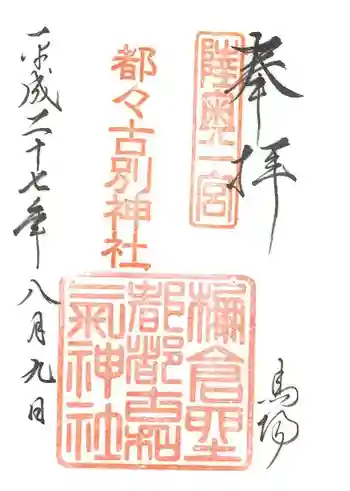 奉拝
陸奥一宮
馬場
都々古別神社
棚倉聖
都都古和
氣神社
平成二十七年八月九日